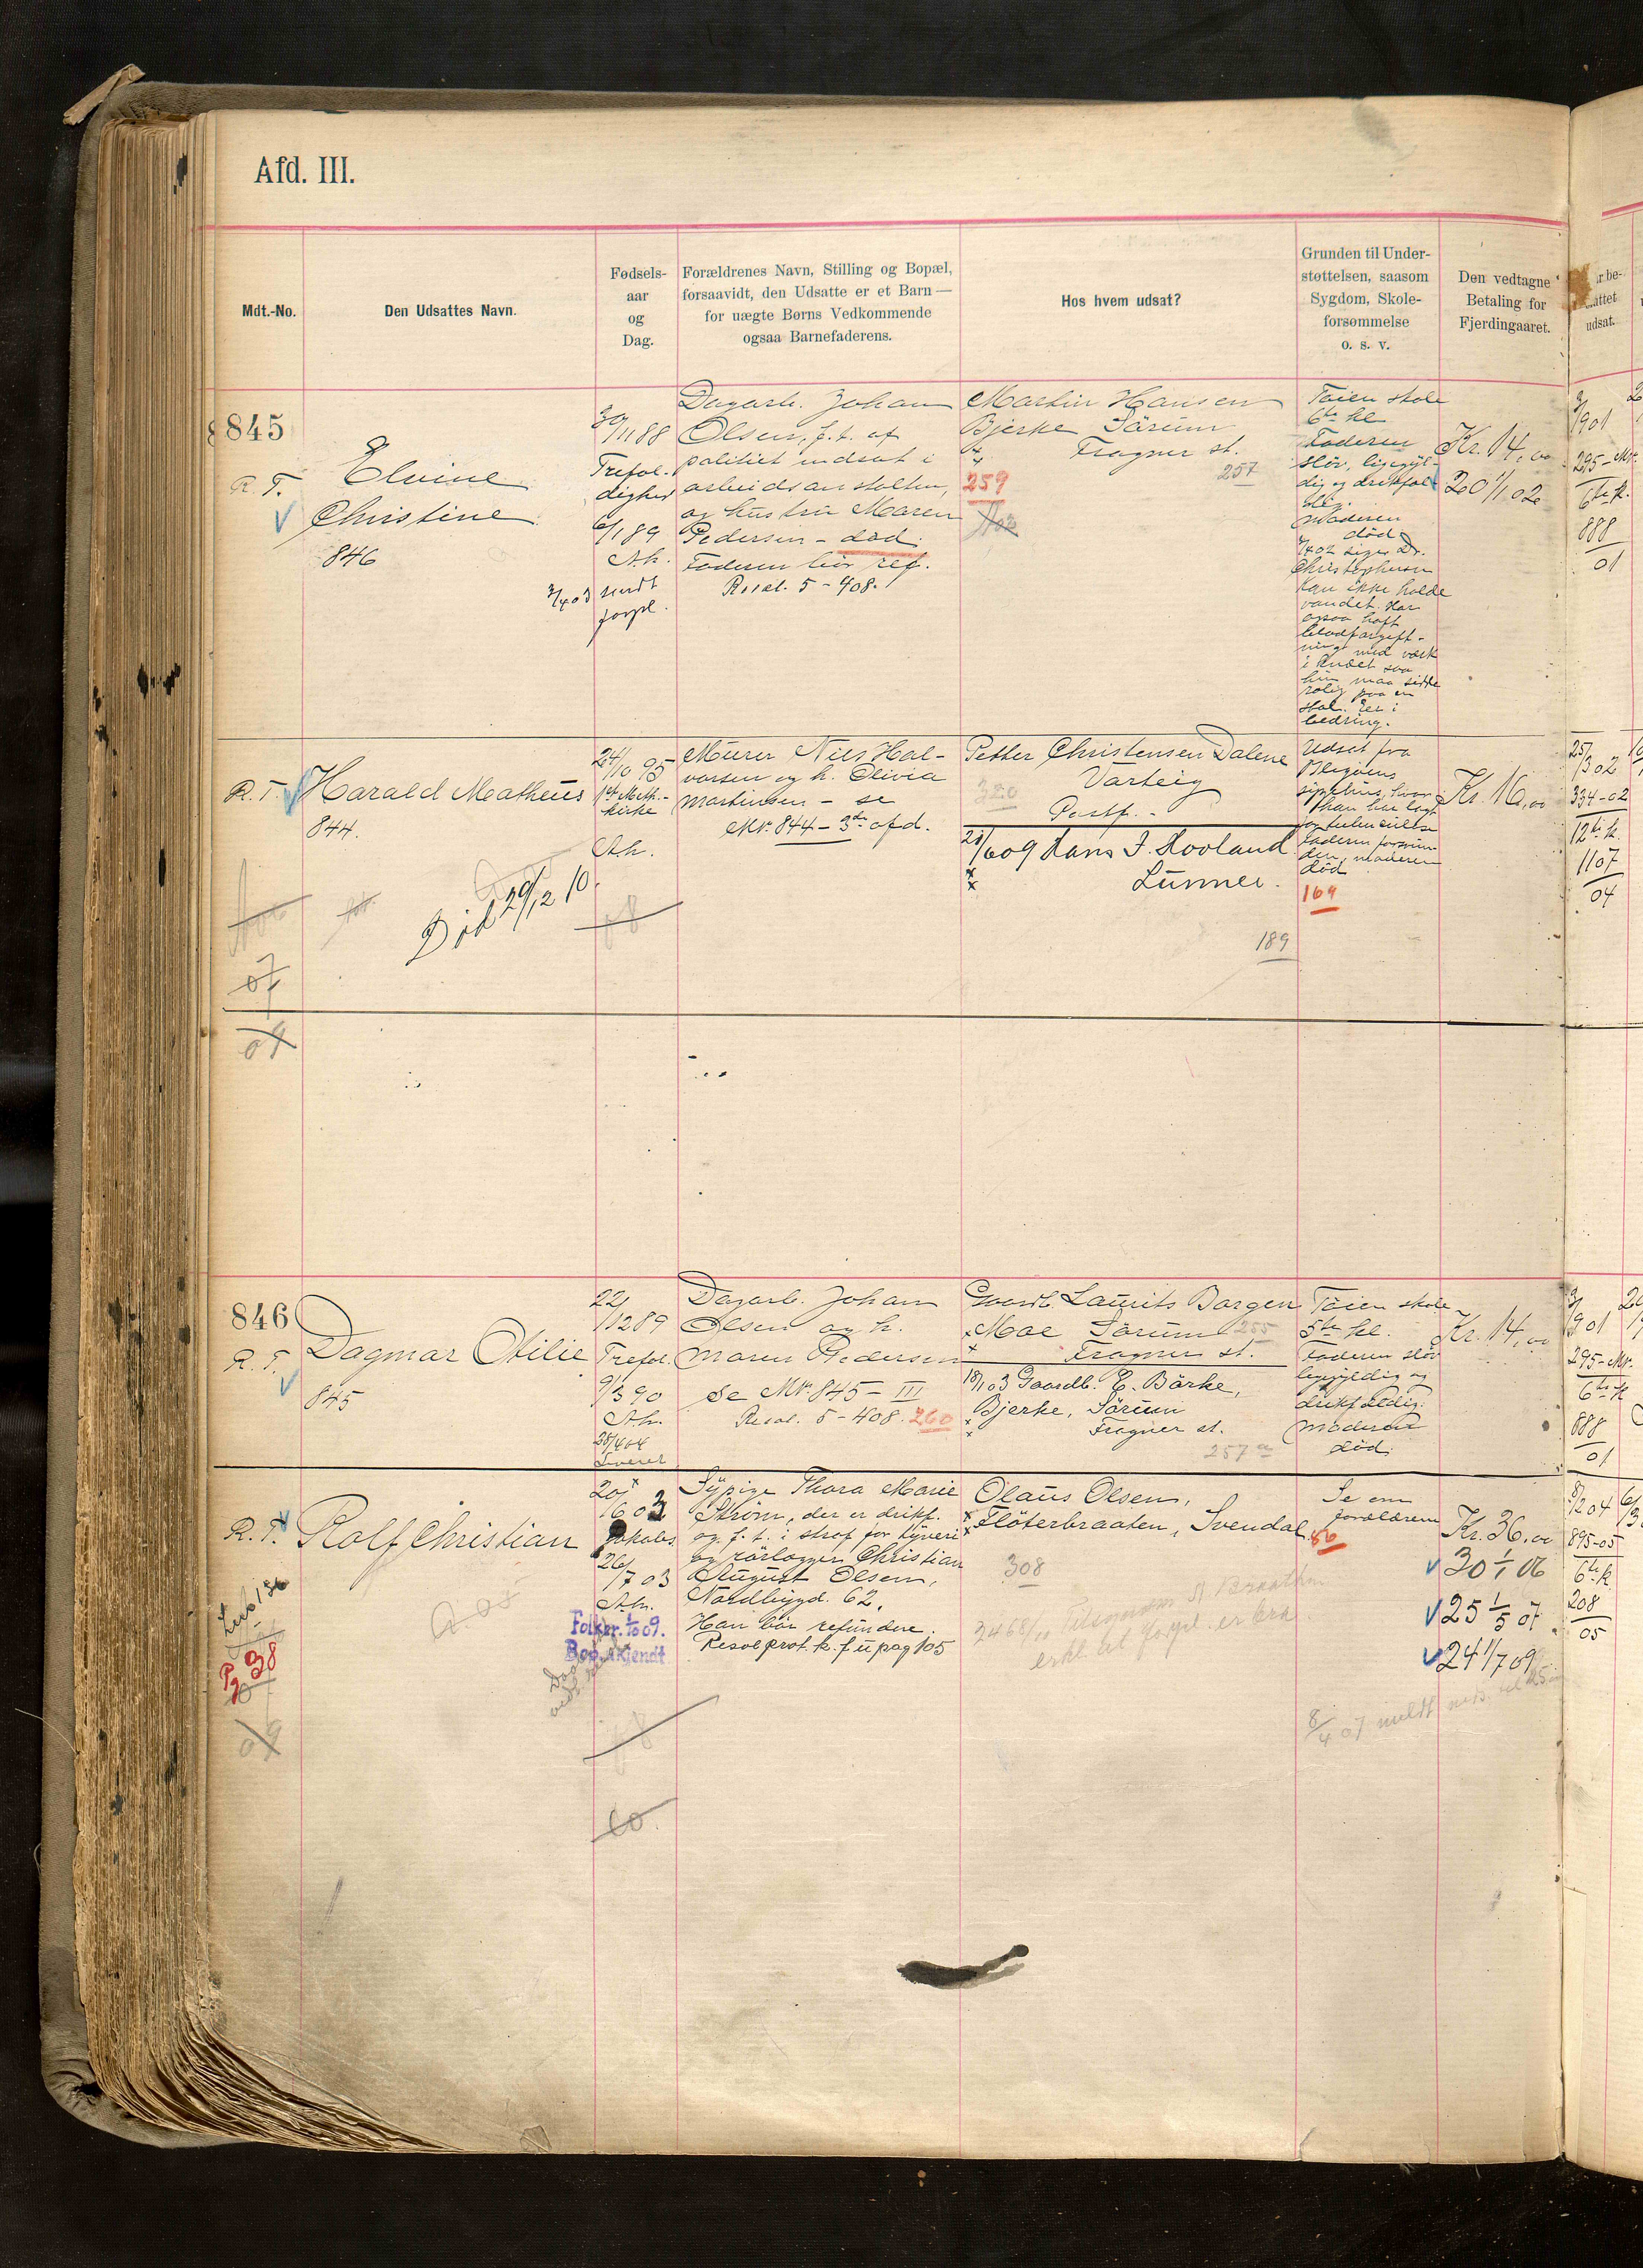 Afd. III.
Mdt.-No.
Den Udsattes Navn.
Fødsels-
aar
og
Dag.
Forældrenes Navn, Stilling og Bopæl,
forsaavidt, den Udsatte er et Barn —
for uægte Børns Vedkommende
ogsaa Barnefaderens.
Hos hvem udsat?
Grunden til Under-
støttelsen, saasom
Sygdom, Skole-
forsømmelse
o. s. v.
Den vedtagne
Betaling for
Fjerdingaaret.
udsat.
845
R. T.
Elvine
Christine
846
30/11 88
Trefol-
dighed
6/1 89
A.h.
3/4 03 sendt
forpl.
Dagarb. Johan
Olsen, f. t. af
politiet indsat i
arbeidsanstalten,
og hustru Maren
Pedersen - død.
Faderen bør ref.
Resol. 5 - 408.
Martin Hansen
Bjerke Sörum
Frogner st.
257
259
Tøien skole
6te kl
Faderen
sløv, ligegyl-
dig og drikfæl-
dig.
Moderen
død
7/4 02 siger Dr.
Christophersen
Kan ikke holde
vandet. Har
ogsaa haft
blodforgift-
ning med værk
i knæet saa
hun maa sidde
rolig paa en
stol. Er i
bedring.
Kr. 14,00
20 1/1 02
3/9 01
295 - Mr.
6te k.
888
01
R. T. Harald Matheus
844.
Død 29/12 10.
24/10 95
1ste Meth.-
kirke
A.h.
Murer Nils Hal-
vorsen og h. Olivia
Martinsen - se
Nr. 844 - 3die afd.
Petter Christensen Dalene
Varteig
320
Postf. -
21/6 09 Hans J. Hovland
Lunner.
189
Udsat fra
sygehus, hvor
han har lagt
Faderen forsvun-
den, moderen
død
169
Kr. 16,00
25/3 02
334 - 02
12te k.
1107
04
07
09
08
846
R. T.
Dagmar Otilie
845
22/12 89
Trefol.
9/3 90
A.h.
Dagarb. Johan
Olsen og h.
Maren Pedersen
Se Nr. 845 - III
Resol. 5 - 408. 260
Gaardb. Laurits Borgen
Moe Sörum 255
Frogner st.
18/1 03 Gaardb. E. Börke,
Bjerke, Sörum
Frogner st.
257 a
Tøien skole
5te kl.
Faderen sløv
ligegyldig og
drikfældig.
Moderen
død.
Kr. 14,00
3/9 01
295 - Mr.
6te k
888
01
R. T. Rolf Christian
20/6 03
Jakobs
26/7 03
A.h.
Folkr. 1/10 09.
Sypige Thora Marie
Strøm, der er drikf.
og f. t. i straf for tyveri
og rørlægger Christian
August Olsen,
Nordbygd. 62.
Han bör refundere.
Resol prot. k. f u pag 105
Olaus Olsen,
Flöterbraaten, Svendal.
308
56
Se om
forældrene
Kr. 36,00
30 1/1 06
25 1/5 07
24 1/7 09
8/2 04
895 - 05
6te k
208
05
09
10.